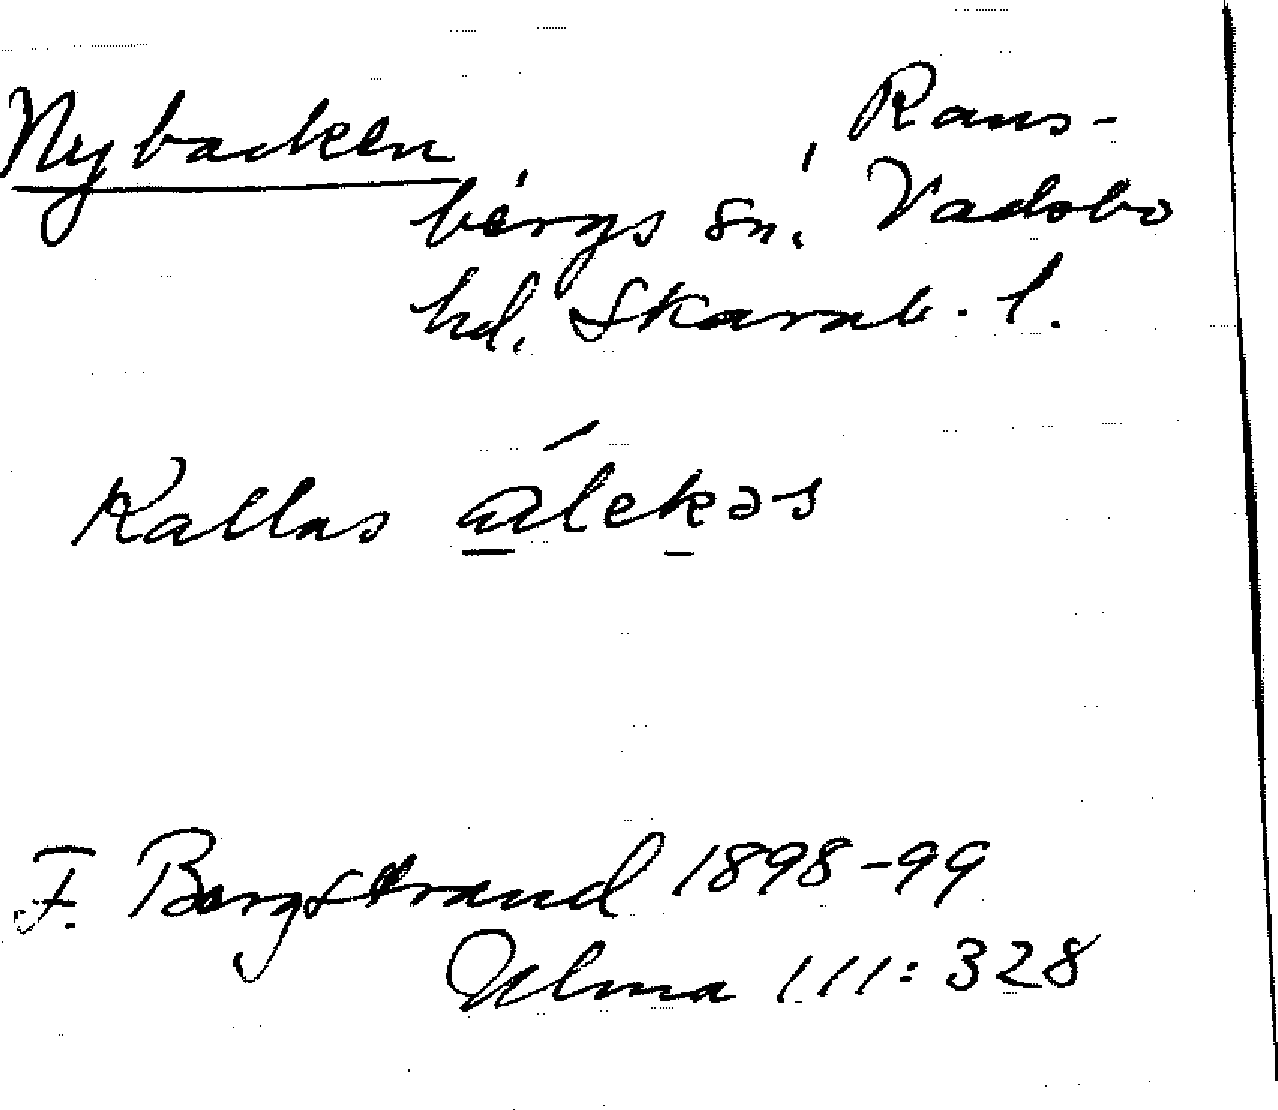 Nybacken Rans-
bergs sn. Vadsbo
hd. Skarab. l.
Kallas álekəs
F. Bergstrand 1898-99
Ulma 111:328